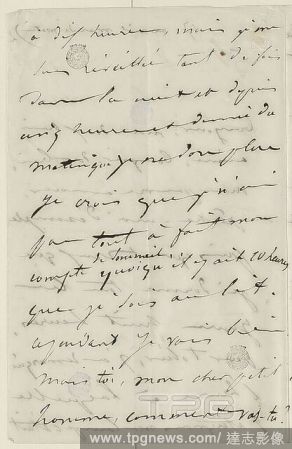 à dix heures, mais je me
suis réveillée tant de fois
dans la nuit et depuis
cinq heures et demie du
matin que je ne dors plus
je crois que je n'ai
pas tout à fait mon
compte de sommeil, quoiqu'il y ait 10 heures
que je sois au lit.
cependant je vais bien
mais toi, mon cher petit
homme, comment vas-tu?
TPG
www.tpgnews.com/ 達志影像